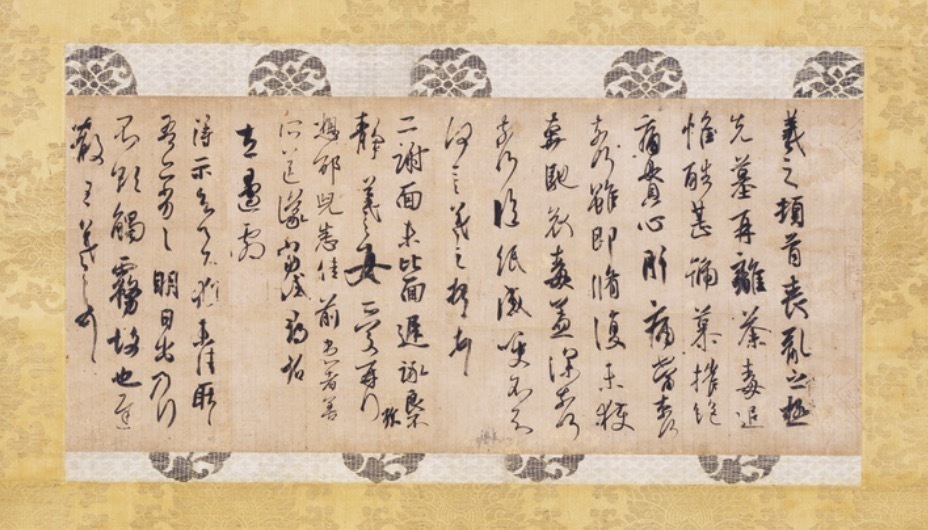 羲之頓首喪亂之極
先墓再離荼毒追
惟酷甚號慕摧絕
痛貫心肝痛當奈何
奈何雖即脩復未獲
奔馳哀毒益深奈何
奈何臨紙感哽不知
何言羲之頓首頓首
二謝面未比面遲詠良不
靜羲之女愛再拜
想邰兒悉佳前患者善
所送議當
左邊劇
得示知足下猶未佳耿耿
吾亦劣劣明日出乃行
不欲觸霧故也遲
散王羲之頓首